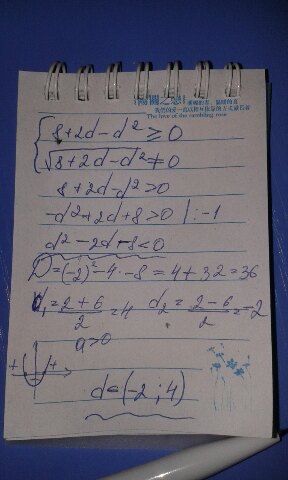 The love of the rambling rose
{ 8+2d-d² ≥ 0
√8+2d-d² ≠ 0
8+2d-d²>0
-d²+2d+8>0 |:-1
d²-2d-8<0
D=(-2)²-4·-8=4+32=36
d₁=2+6/2=4 d₂=2-6/2=-2
a>0
+ - +
d=(-2;4)